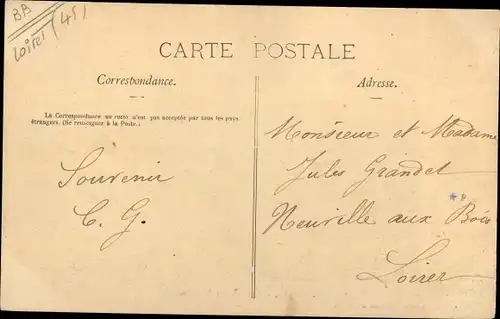 BB
Loiret (45)
CARTE POSTALE
Correspondance.
La Correspondance au recto n'est pas acceptée par tous les pays
étrangers. (Se renseigner à la Poste.)
Souvenir
C. G.
Adresse.
Monsieur et Madame
Jules Grandet
Neuville aux Bois
Loiret